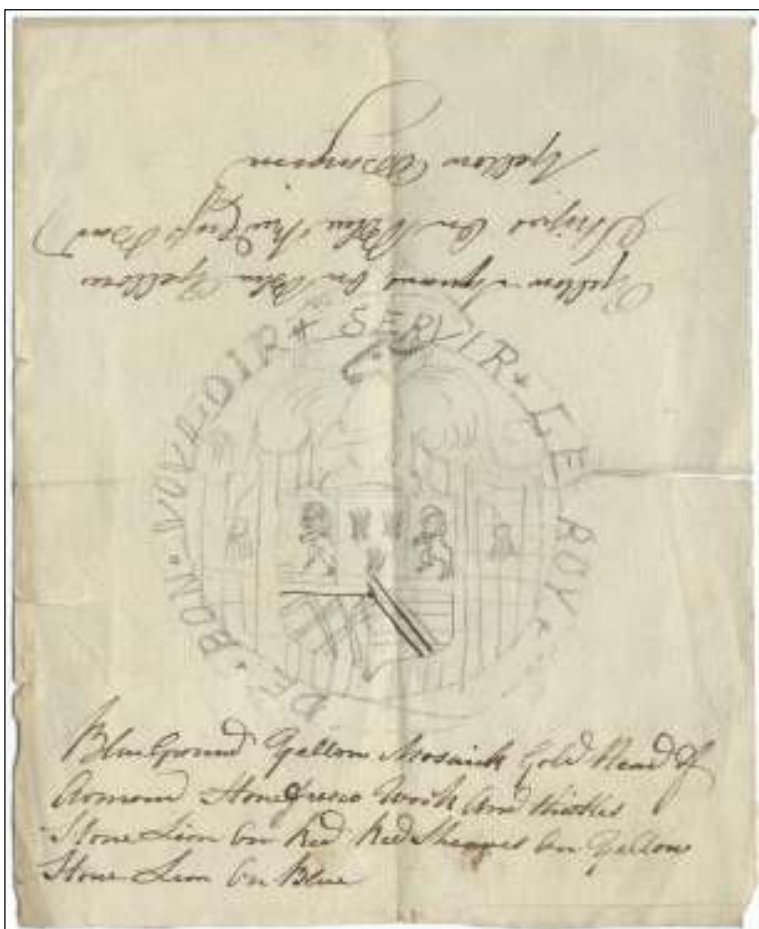 Yellow Square On Blue Yellow
Stripes On Blue
Yellow Margin
DE·BON·VOULOIR+SERVIR+LE ROY+
Blue Ground Yellow Mosaick Gold Head of
Armour Stone fresco Work And
Stone Lion On Red Red Sheaves On Yellow
Stone Lion On Blue